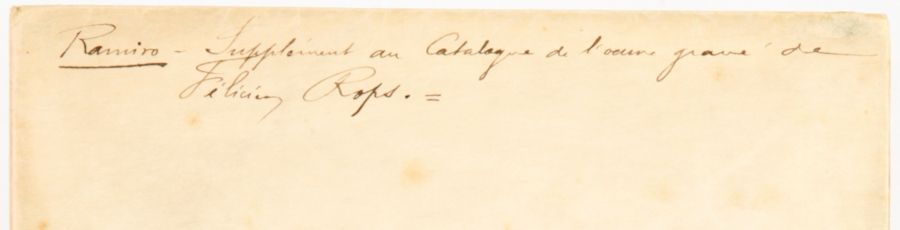 Ramiro - Supplément au Catalogue de l'œuvre gravé de
Félicien Rops. =